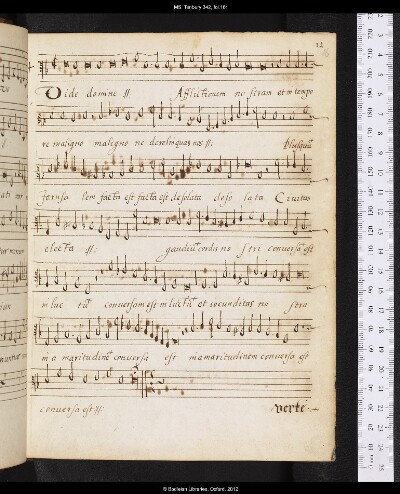 MS. Tenbury 342, fol.16r
12
16
Vide domine ij Afflictionem no stram et in tempo
re maligno maligno ne derelinquas nos ij:
Jerusa lem facta est facta est desolata deso lata Ciuitas
electa ij: gaudiū cordis no stri conversū est
in luc tū conversum est in luctū et iocunditas no stra
in a maritudinē conversa est in amaritudinem conversa est
conversa est ij:
verte
© Bodleian Libraries, Oxford, 2012